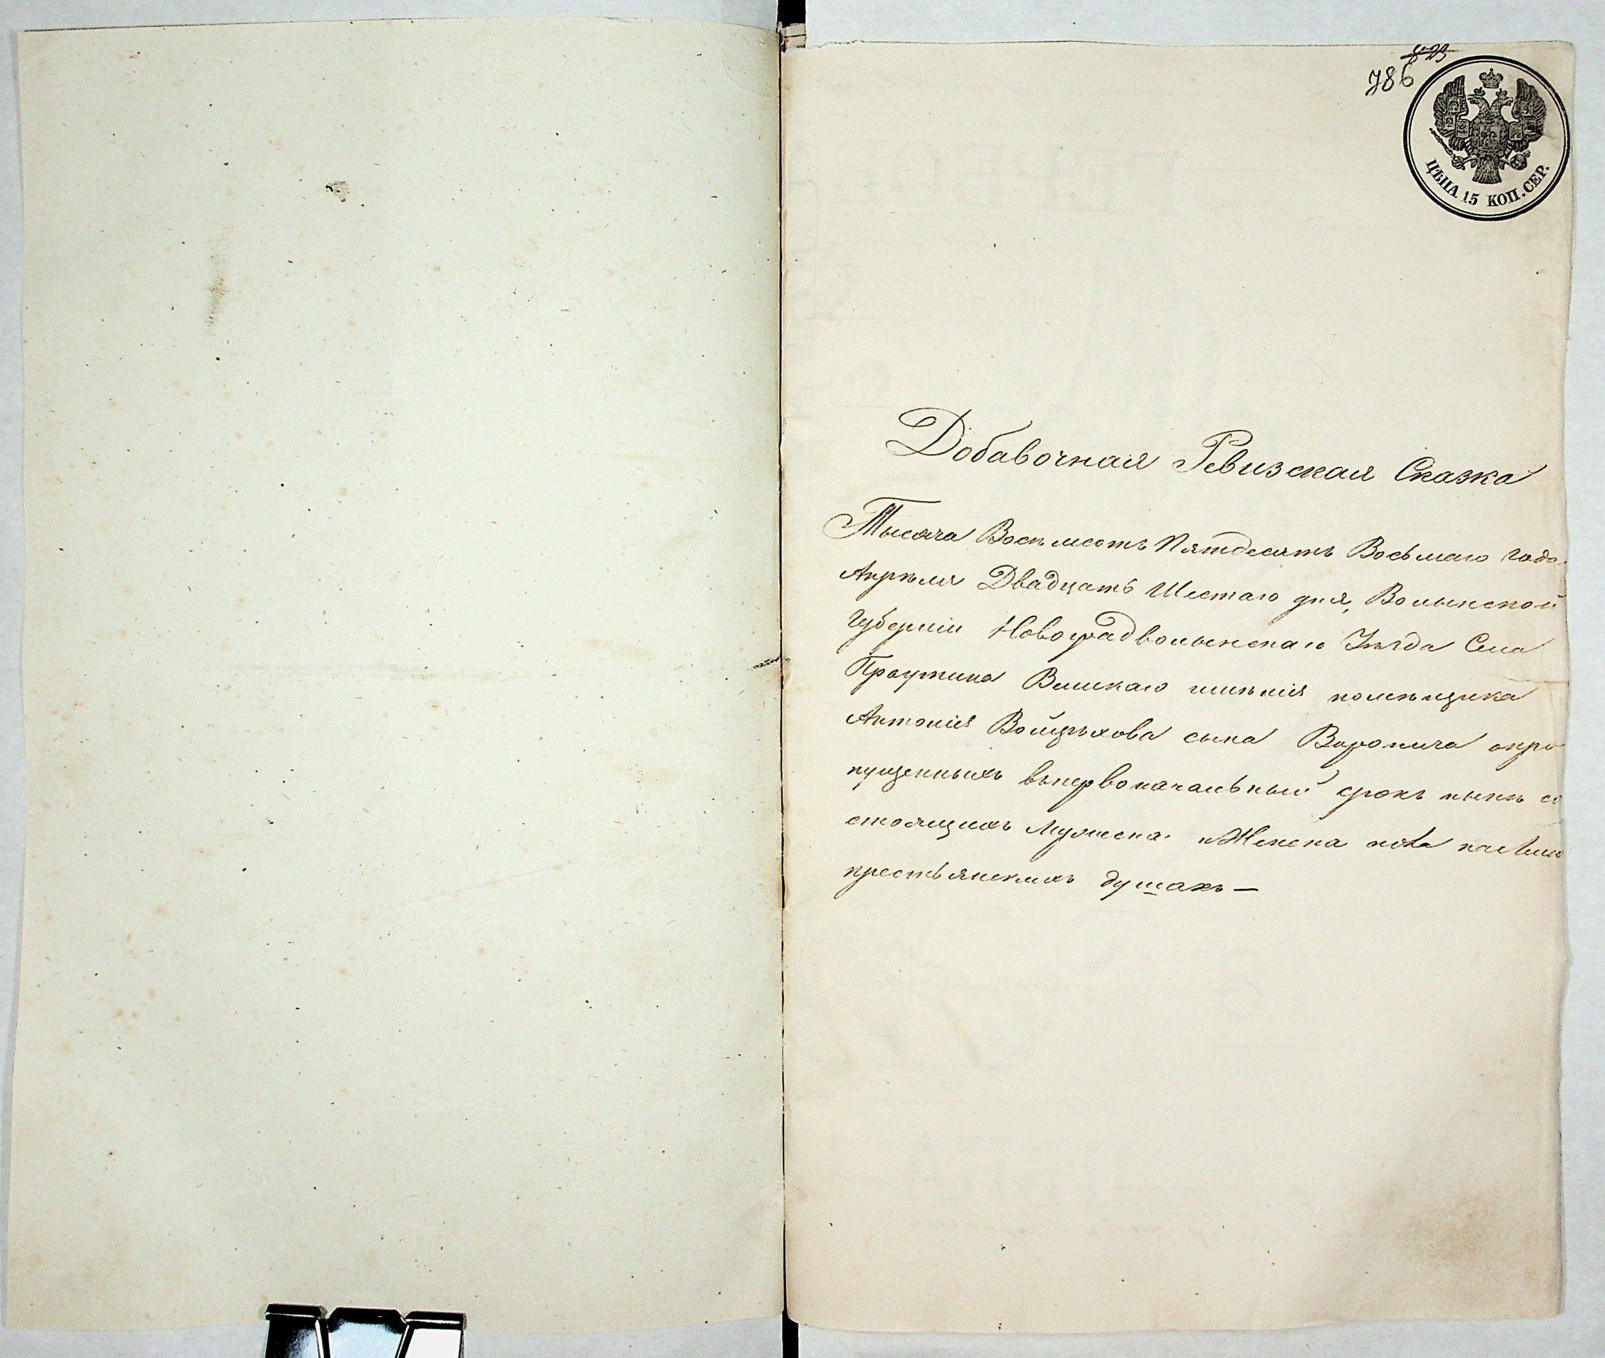 823
786
ЦѢНА 15 КОП. СЕР.
Добавочная Ревизская Сказка
Тысяча Восемьсотъ Пятдесятъ Восьмаго года
Апрѣля Двадцать Шестаго дня, Волынской
Губерніи Новоградволынскаго Уѣзда Села
Великаго имѣнія помѣщика
Антонія Войцѣхова сына Воронича о про
пущенныхъ въ первоначальный срокъ нынѣ со
стоящихъ Мужеска и Женска пола
крестьянскихъ душахъ —